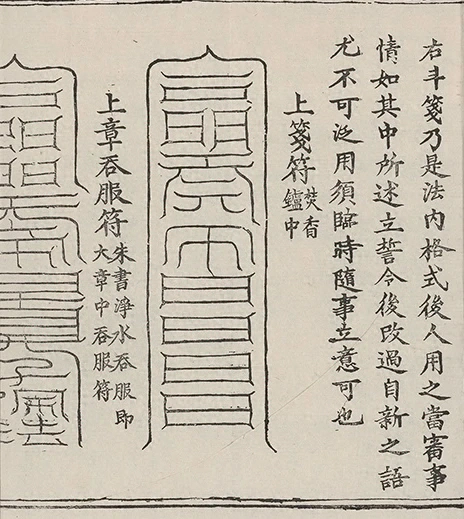 右斗箋乃是法內格式後人用之當審事
情如其中所述立誓令後改過自新之語
尤不可泛用須臨時隨事立意可也
上箋符焚香
鑪中
上章吞服符朱書淨水吞服即
大章中吞服符